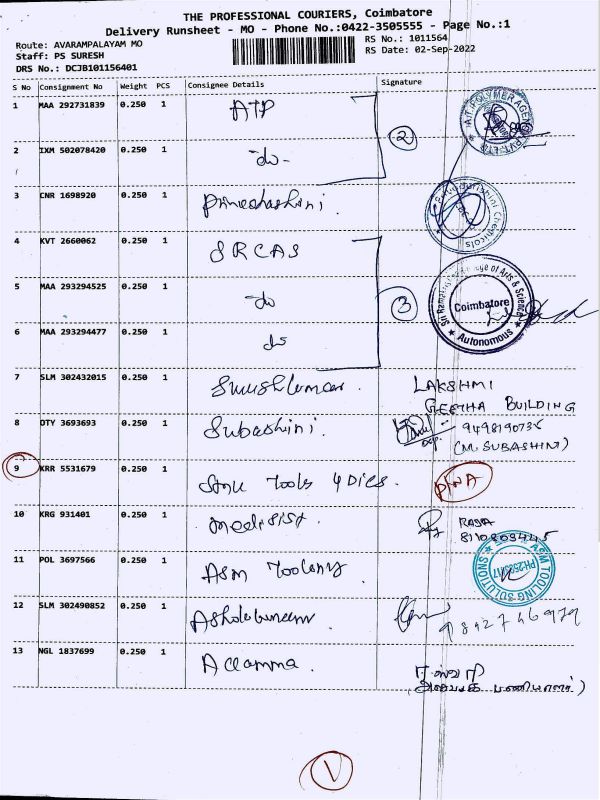 THE PROFESSIONAL COURIERS, Coimbatore
Delivery Runsheet - MO - Phone No.:0422-3505555 - Page No.:1
Route: AVARAMPALAYAM MO
RS No.: 1011564
Staff: PS SURESH
RS Date: 02-Sep-2022
DRS No.: DCJB101156401
S No Consignment No Weight PCS Consignee Details Signature
1 MAA 292731839 0.250 1 ATP
2 IXM 502078420 0.250 1 do- 2
3 CNR 1698920 0.250 1 Priyadharshini.
4 KVT 2660062 0.250 1 SRCAS
5 MAA 293294525 0.250 1 do 3
Coimbatore
Autonomous
6 MAA 293294477 0.250 1 do
7 SLM 302432015 0.250 1 LAKSHMI
GEETHA BUILDING
8 OTY 3693693 0.250 1 Subashini. 9498190735
(M. SUBASHINI)
9 KRR 5531679 0.250 1 Tools & Dies.
10 KRG 931401 0.250 1 Medisist. RAJA
11 POL 3697566 0.250 1 ASM Tooling
TOOLING SOLUTIONS
12 SLM 302490852 0.250 1
13 NGL 1837699 0.250 1 Allamma.